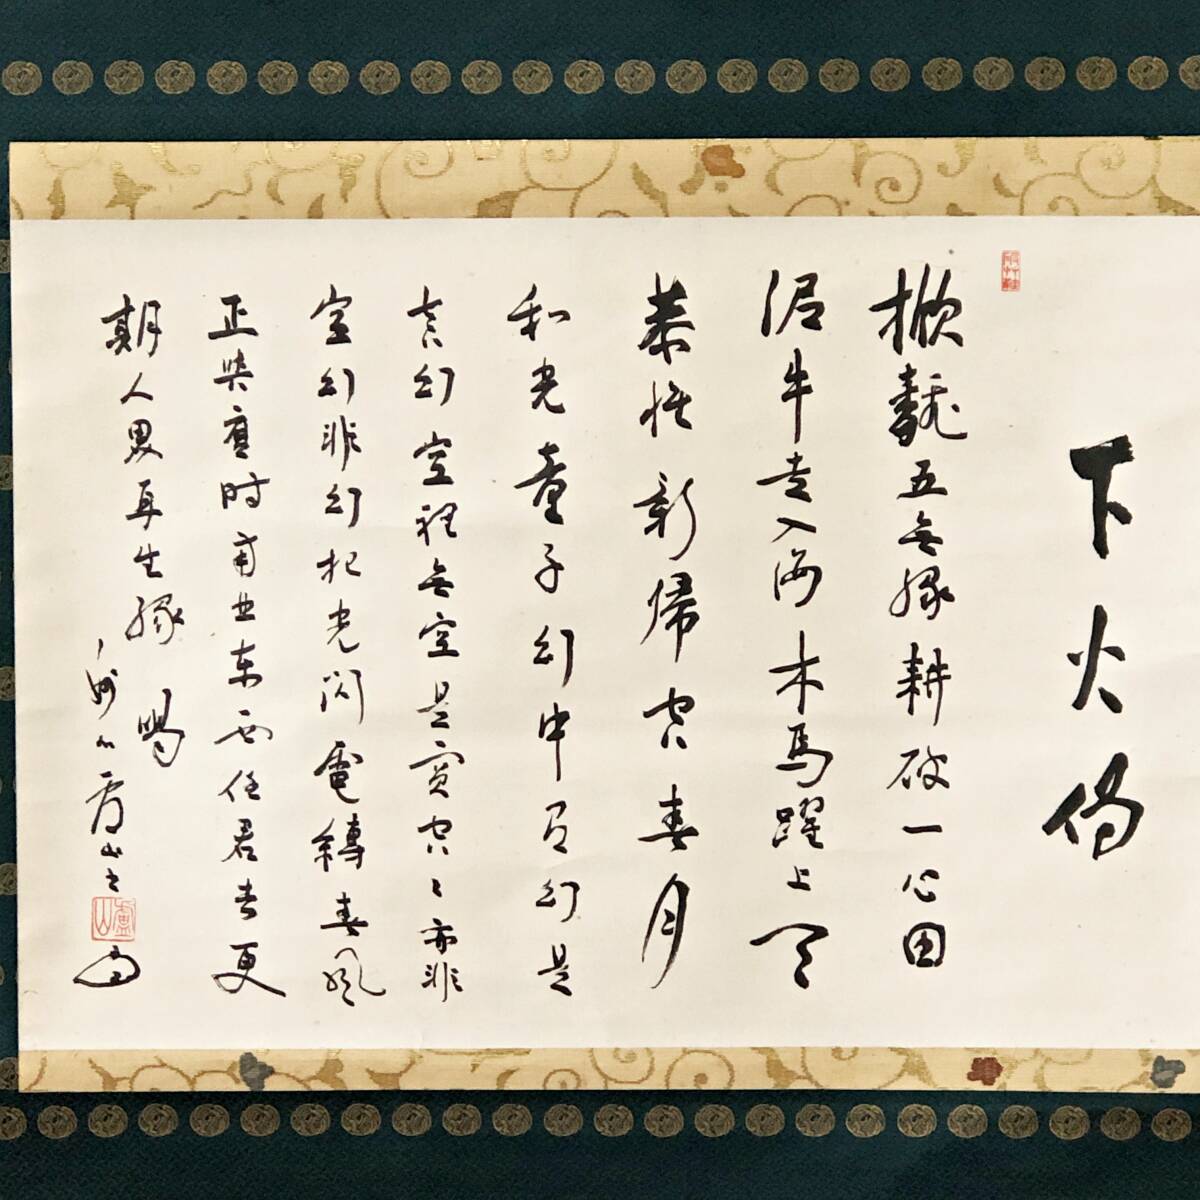 下火偈
五無縁耕破一心田
泥牛走入海木馬躍上天
恭惟新帰空春月
和光童子幻中有幻是
真幻空裡無空是実空々亦非
空幻非幻光閃電轉春風
正與麼時南北東西任君去更
期人界再生縁 喝
盧山